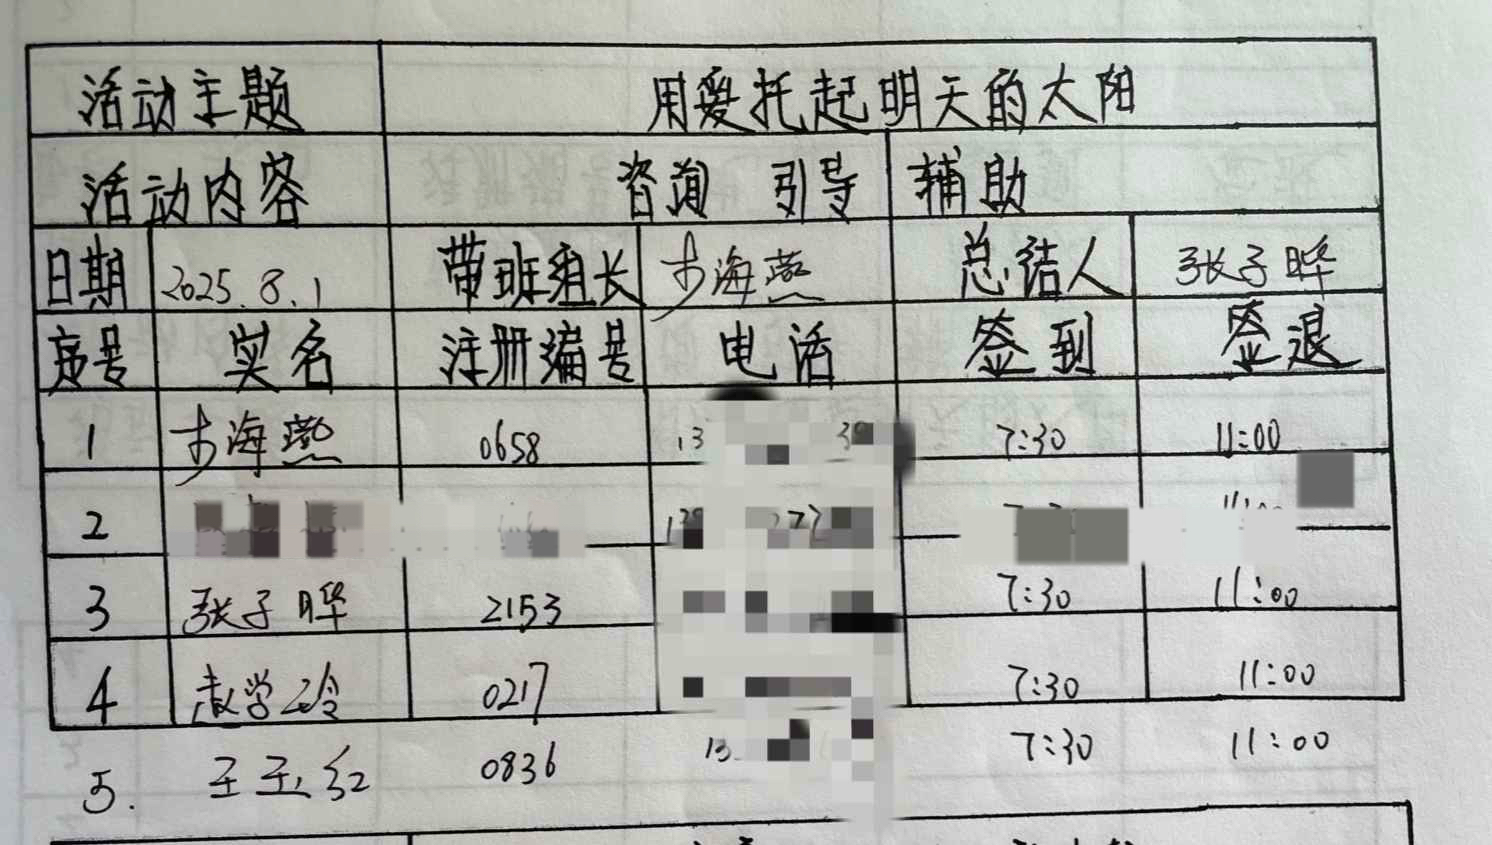 活动主题 用爱托起明天的太阳
活动内容 咨询 引导 辅助
日期 2025.8.1 带班组长 步海燕 总结人 张子晔
序号 实名 注册编号 电话 签到 签退
1 步海燕 0658 13 39 7:30 11:00
2
3 张子晔 2153 7:30 11:00
4 学玲 0217 7:30 11:00
5. 王玉红 0836 13 7:30 11:00